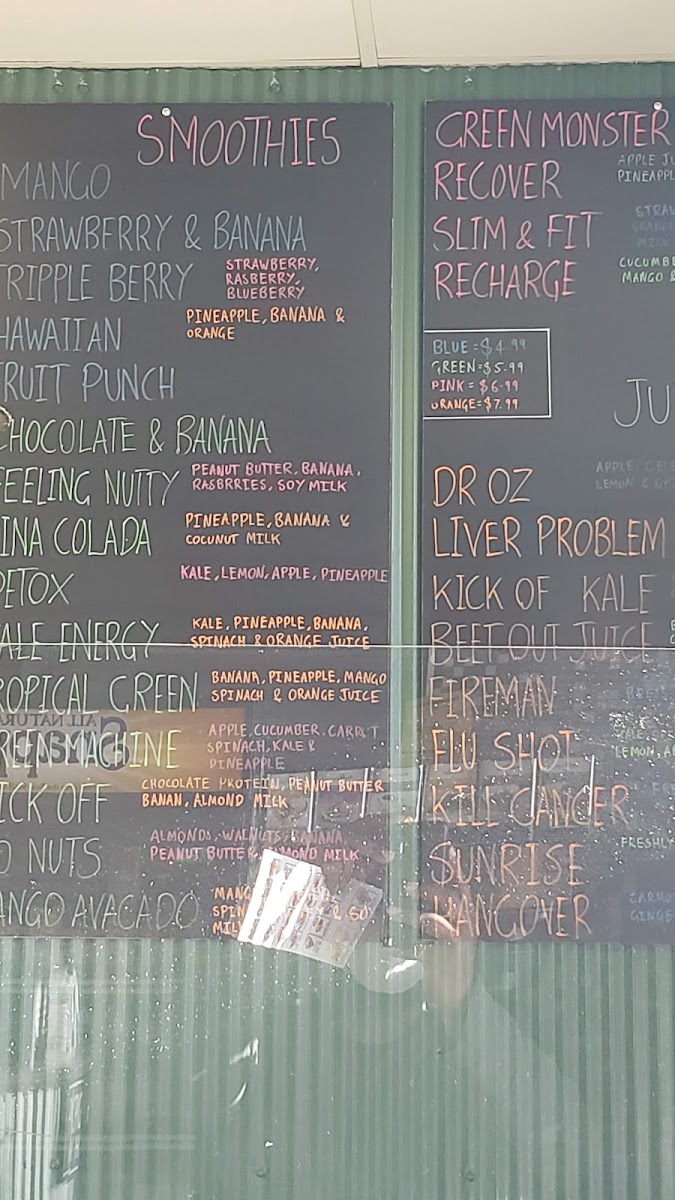 SMOOTHIES
MANGO
STRAWBERRY & BANANA
TRIPPLE BERRY
STRAWBERRY,
RASBERRY,
BLUEBERRY
HAWAIIAN
PINEAPPLE, BANANA &
ORANGE
FRUIT PUNCH
CHOCOLATE & BANANA
FEELING NUTTY
PEANUT BUTTER, BANANA,
RASBRRIES, SOY MILK
INA COLADA
PINEAPPLE, BANANA &
COCUNUT MILK
DETOX
KALE, LEMON, APPLE, PINEAPPLE
ALE ENERGY
KALE, PINEAPPLE, BANANA,
SPINACH & ORANGE JUICE
ROPICAL GREEN
BANANA, PINEAPPLE, MANGO
SPINACH & ORANGE JUICE
REEN MACHINE
APPLE, CUCUMBER, CARROT
SPINACH, KALE &
PINEAPPLE
ICK OFF
CHOCOLATE PROTEIN, PEANUT BUTTER
BANAN, ALMOND MILK
O NUTS
ALMONDS, WALNUTS, BANANA,
PEANUT BUTTER, ALMOND MILK
ANGO AVACADO
MANG
SPIN & SOY
MIL
GREEN MONSTER
APPLE JU
PINEAPPL
RECOVER
SLIM & FIT
STRAW
GRANOL
MILK
RECHARGE
CUCUMBE
MANGO &
BLUE = $4.99
GREEN = $5.99
PINK = $6.99
ORANGE = $7.99
JU
DR OZ
APPLE, CELE
LEMON & SPI
LIVER PROBLEM
KICK OF KALE
BEET OUT JUICE
FIREMAN
BEET
FLU SHOT
KALE, SP
LEMON, AP
KILL CANCER
SUNRISE
FRESHLY
HANGOVER
CARRO
GINGE
ALL NATURA